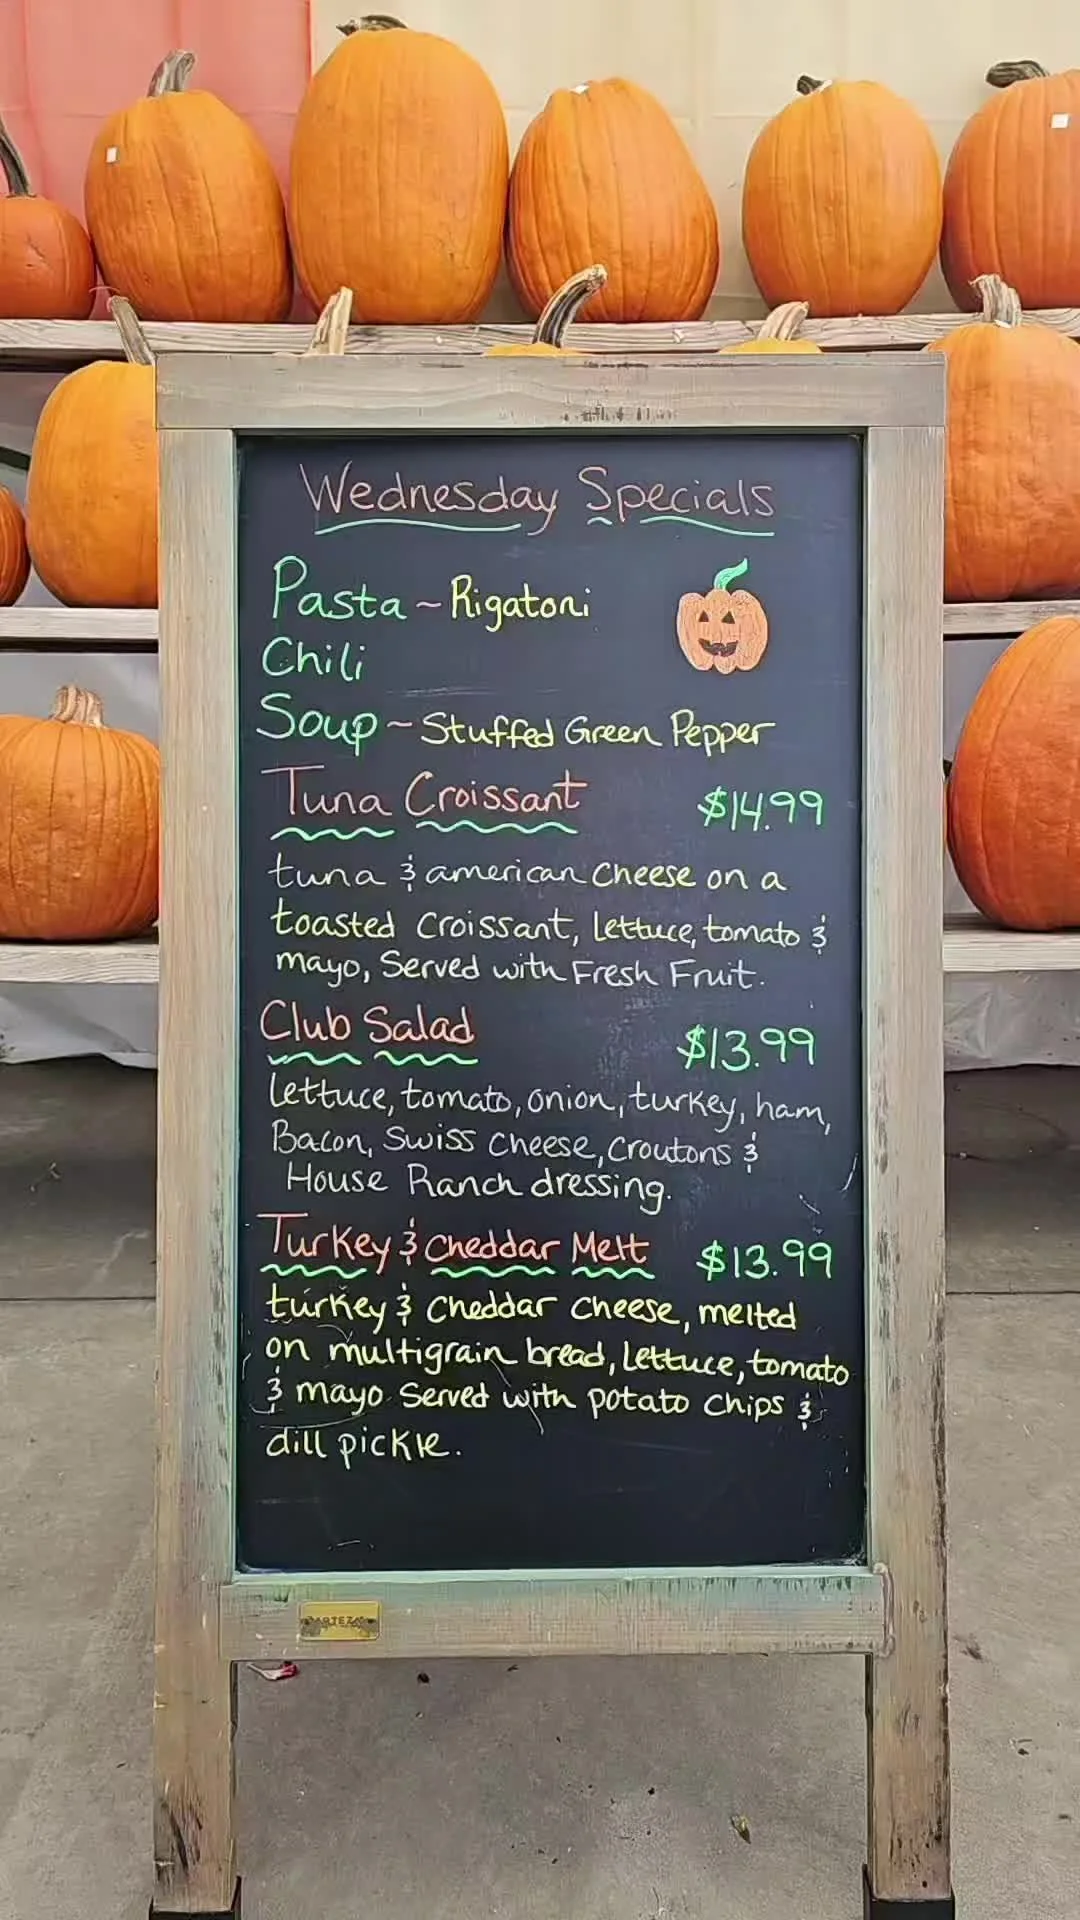 Wednesday Specials
Pasta ~ Rigatoni
Chili
Soup ~ Stuffed Green Pepper
Tuna Croissant $14.99
tuna & american cheese on a
toasted croissant, lettuce, tomato &
mayo, Served with Fresh Fruit.
Club Salad $13.99
Lettuce, tomato, onion, turkey, ham,
Bacon, Swiss cheese, croutons &
House Ranch dressing.
Turkey & Cheddar Melt $13.99
turkey & cheddar cheese, melted
on multigrain bread, lettuce, tomato
& mayo Served with potato chips &
dill pickle.